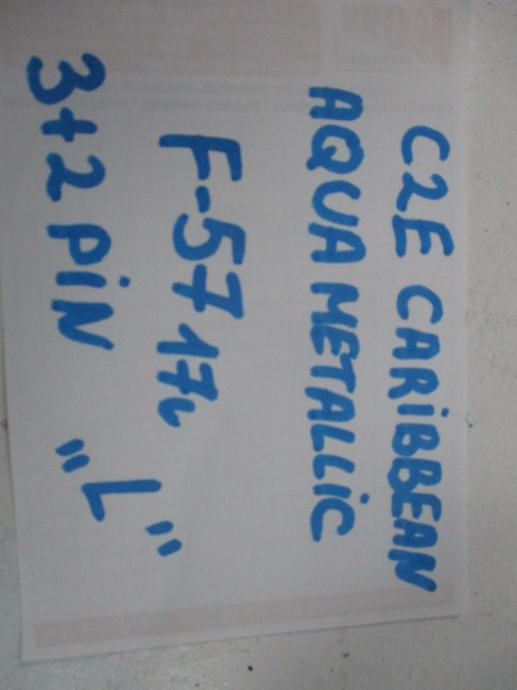 C2E CARiBBEAN
AQUA METALLiC
F-57 17r
3+2 PiN "L"